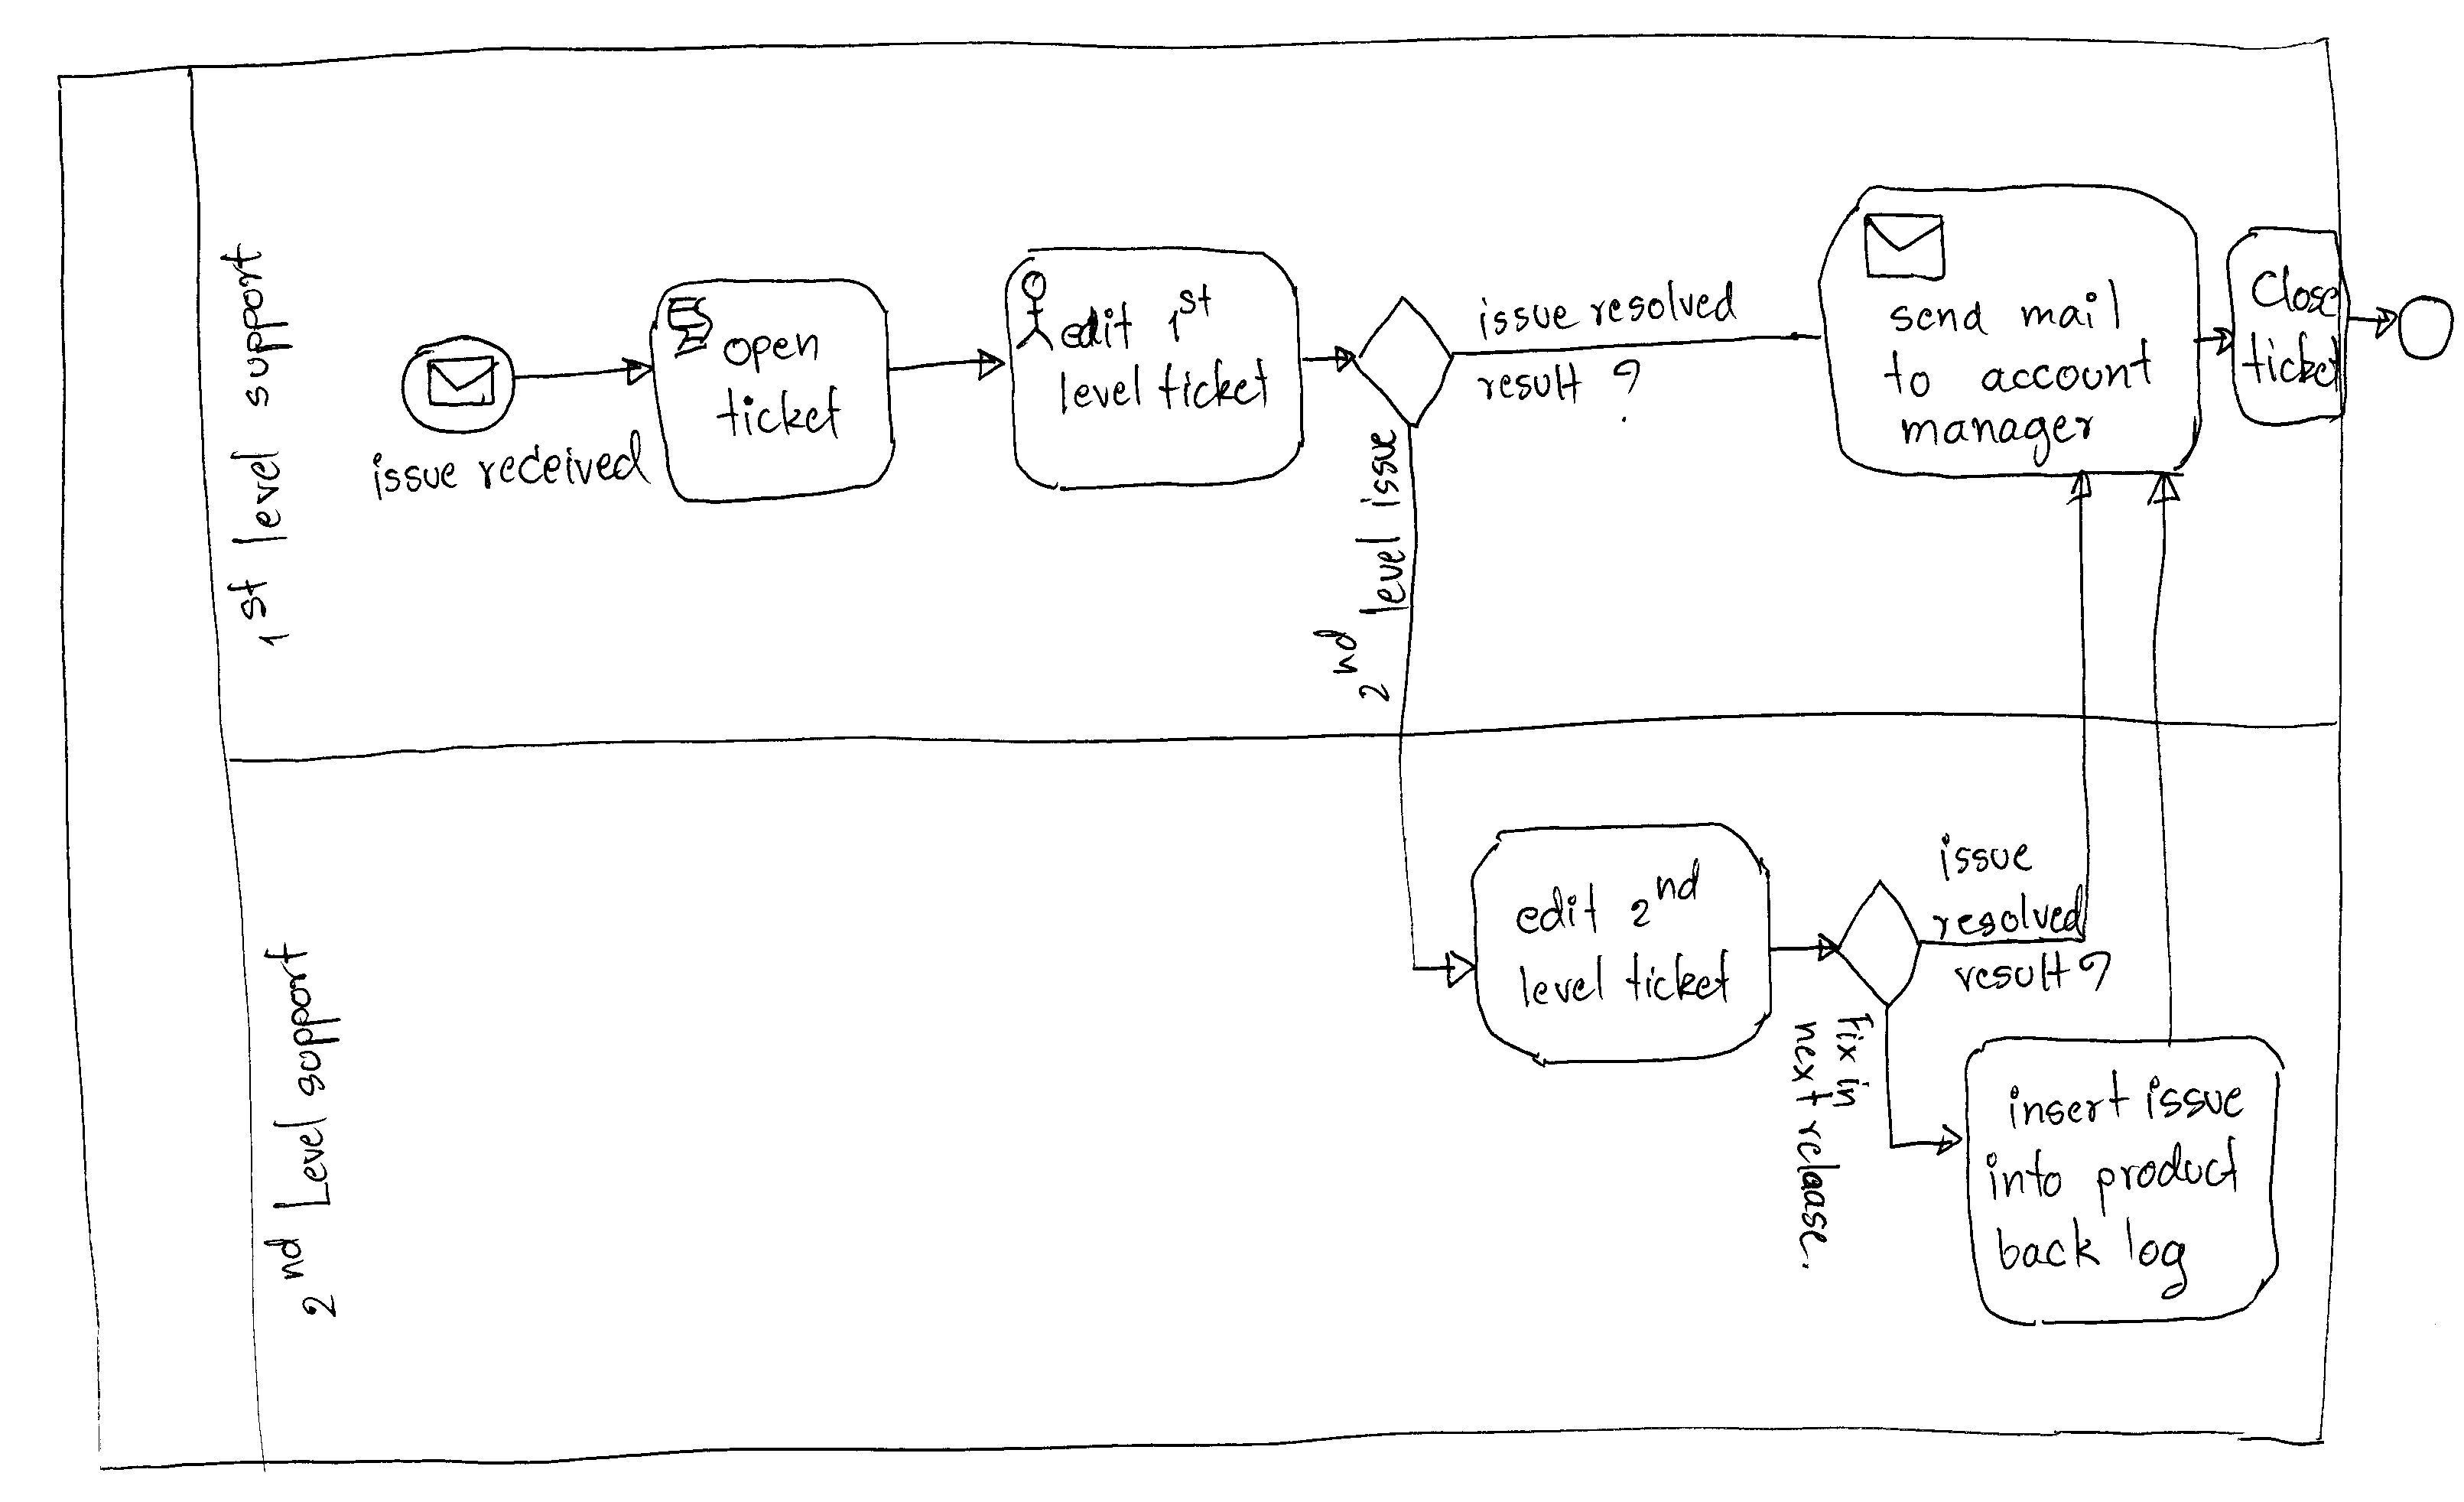 1st level support
issue received
open
ticket
edit 1st
level ticket
issue resolved
result ?
2nd level issue
send mail
to account
manager
Close
ticket
2nd Level support
edit 2nd
level ticket
issue
resolved
result ?
Fix in
next relaase.
insert issue
into product
back log